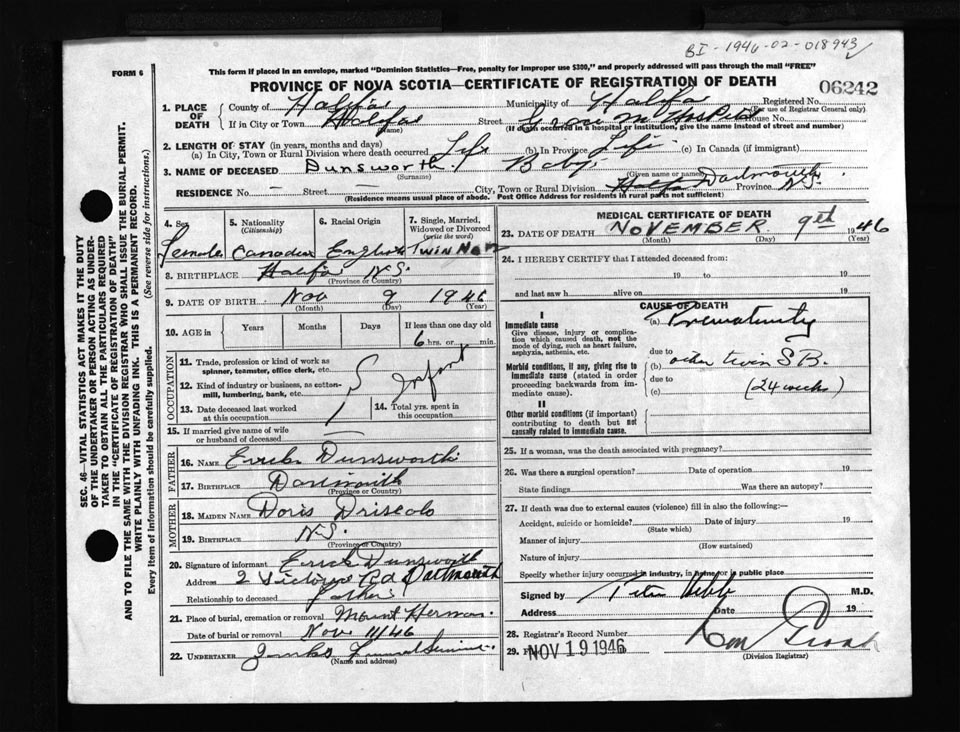 BI-1946-02-018943
FORM 6
This form if placed in an envelope, marked "Dominion Statistics—Free, penalty for improper use $300," and properly addressed will pass through the mail "FREE"
PROVINCE OF NOVA SCOTIA—CERTIFICATE OF REGISTRATION OF DEATH
06242
1. PLACE OF DEATH
County of Halifax
Municipality of Halifax
Registered No.
(For use of Registrar General only)
If in City or Town Halifax
(Name)
Street Grace M Hospital House No.
(If death occurred in a hospital or institution, give the name instead of street and number)
2. LENGTH OF STAY (in years, months and days)
(a) In City, Town or Rural Division where death occurred Life (b) In Province Life (c) In Canada (if immigrant)
3. NAME OF DECEASED Dunsworth, Baby
(Surname) (Given name or names)
RESIDENCE No. — Street — City, Town or Rural Division Dartmouth Province N.S.
(Residence means usual place of abode. Post Office Address for residents in rural parts not sufficient)
4. Sex
Female
5. Nationality
(Citizenship)
Canadian
6. Racial Origin
English
7. Single, Married, Widowed or Divorced
(write the word)
Twin
8. BIRTHPLACE Halifax N.S.
(Province or Country)
9. DATE OF BIRTH Nov 9 1946
(Month) (Day) (Year)
10. AGE in
Years Months Days If less than one day old
6 hrs. or min.
OCCUPATION
11. Trade, profession or kind of work as spinner, teamster, office clerk, etc.
12. Kind of industry or business, as cotton-mill, lumbering, bank, etc.
Infant
13. Date deceased last worked at this occupation
14. Total yrs. spent in this occupation
15. If married give name of wife or husband of deceased
FATHER
16. NAME Dunsworth
17. BIRTHPLACE Dartmouth
(Province or Country)
MOTHER
18. MAIDEN NAME Doris
19. BIRTHPLACE N.S.
(Province or Country)
20. Signature of informant Dunsworth
Address 2 Rd Dartmouth
Relationship to deceased father
21. Place of burial, cremation or removal Mount Hermon
Date of burial or removal Nov 11/46
22. UNDERTAKER Funeral
(Name and address)
MEDICAL CERTIFICATE OF DEATH
23. DATE OF DEATH NOVEMBER 9th 1946
(Month) (Day) (Year)
24. I HEREBY CERTIFY that I attended deceased from:
19 to 19
and last saw h alive on 19
CAUSE OF DEATH
I
Immediate cause
Give disease, injury or complication which caused death, not the mode of dying, such as heart failure, asphyxia, asthenia, etc.
(a) Prematurity
due to
Morbid conditions, if any, giving rise to immediate cause (stated in order proceeding backwards from immediate cause).
(b) other twin S.B.
due to
(c) (24 weeks)
II
Other morbid conditions (if important) contributing to death but not causally related to immediate cause.
25. If a woman, was the death associated with pregnancy?
26. Was there a surgical operation? Date of operation 19
State findings Was there an autopsy?
27. If death was due to external causes (violence) fill in also the following:—
Accident, suicide or homicide? Date of injury 19
(State which)
Manner of injury
(How sustained)
Nature of injury
Specify whether injury occurred in industry, in home or in public place
Signed by M.D.
Address Date 19
28. Registrar's Record Number
29. NOV 19 1946
(Division Registrar)
SEC. 46—VITAL STATISTICS ACT MAKES IT THE DUTY OF THE UNDERTAKER OR PERSON ACTING AS UNDERTAKER TO OBTAIN ALL THE PARTICULARS REQUIRED IN THE "CERTIFICATE OF REGISTRATION OF DEATH" AND TO FILE THE SAME WITH THE DIVISION REGISTRAR WHO SHALL ISSUE THE BURIAL PERMIT.
WRITE PLAINLY WITH UNFADING INK. THIS IS A PERMANENT RECORD.
Every item of information should be carefully supplied. (See reverse side for instructions.)